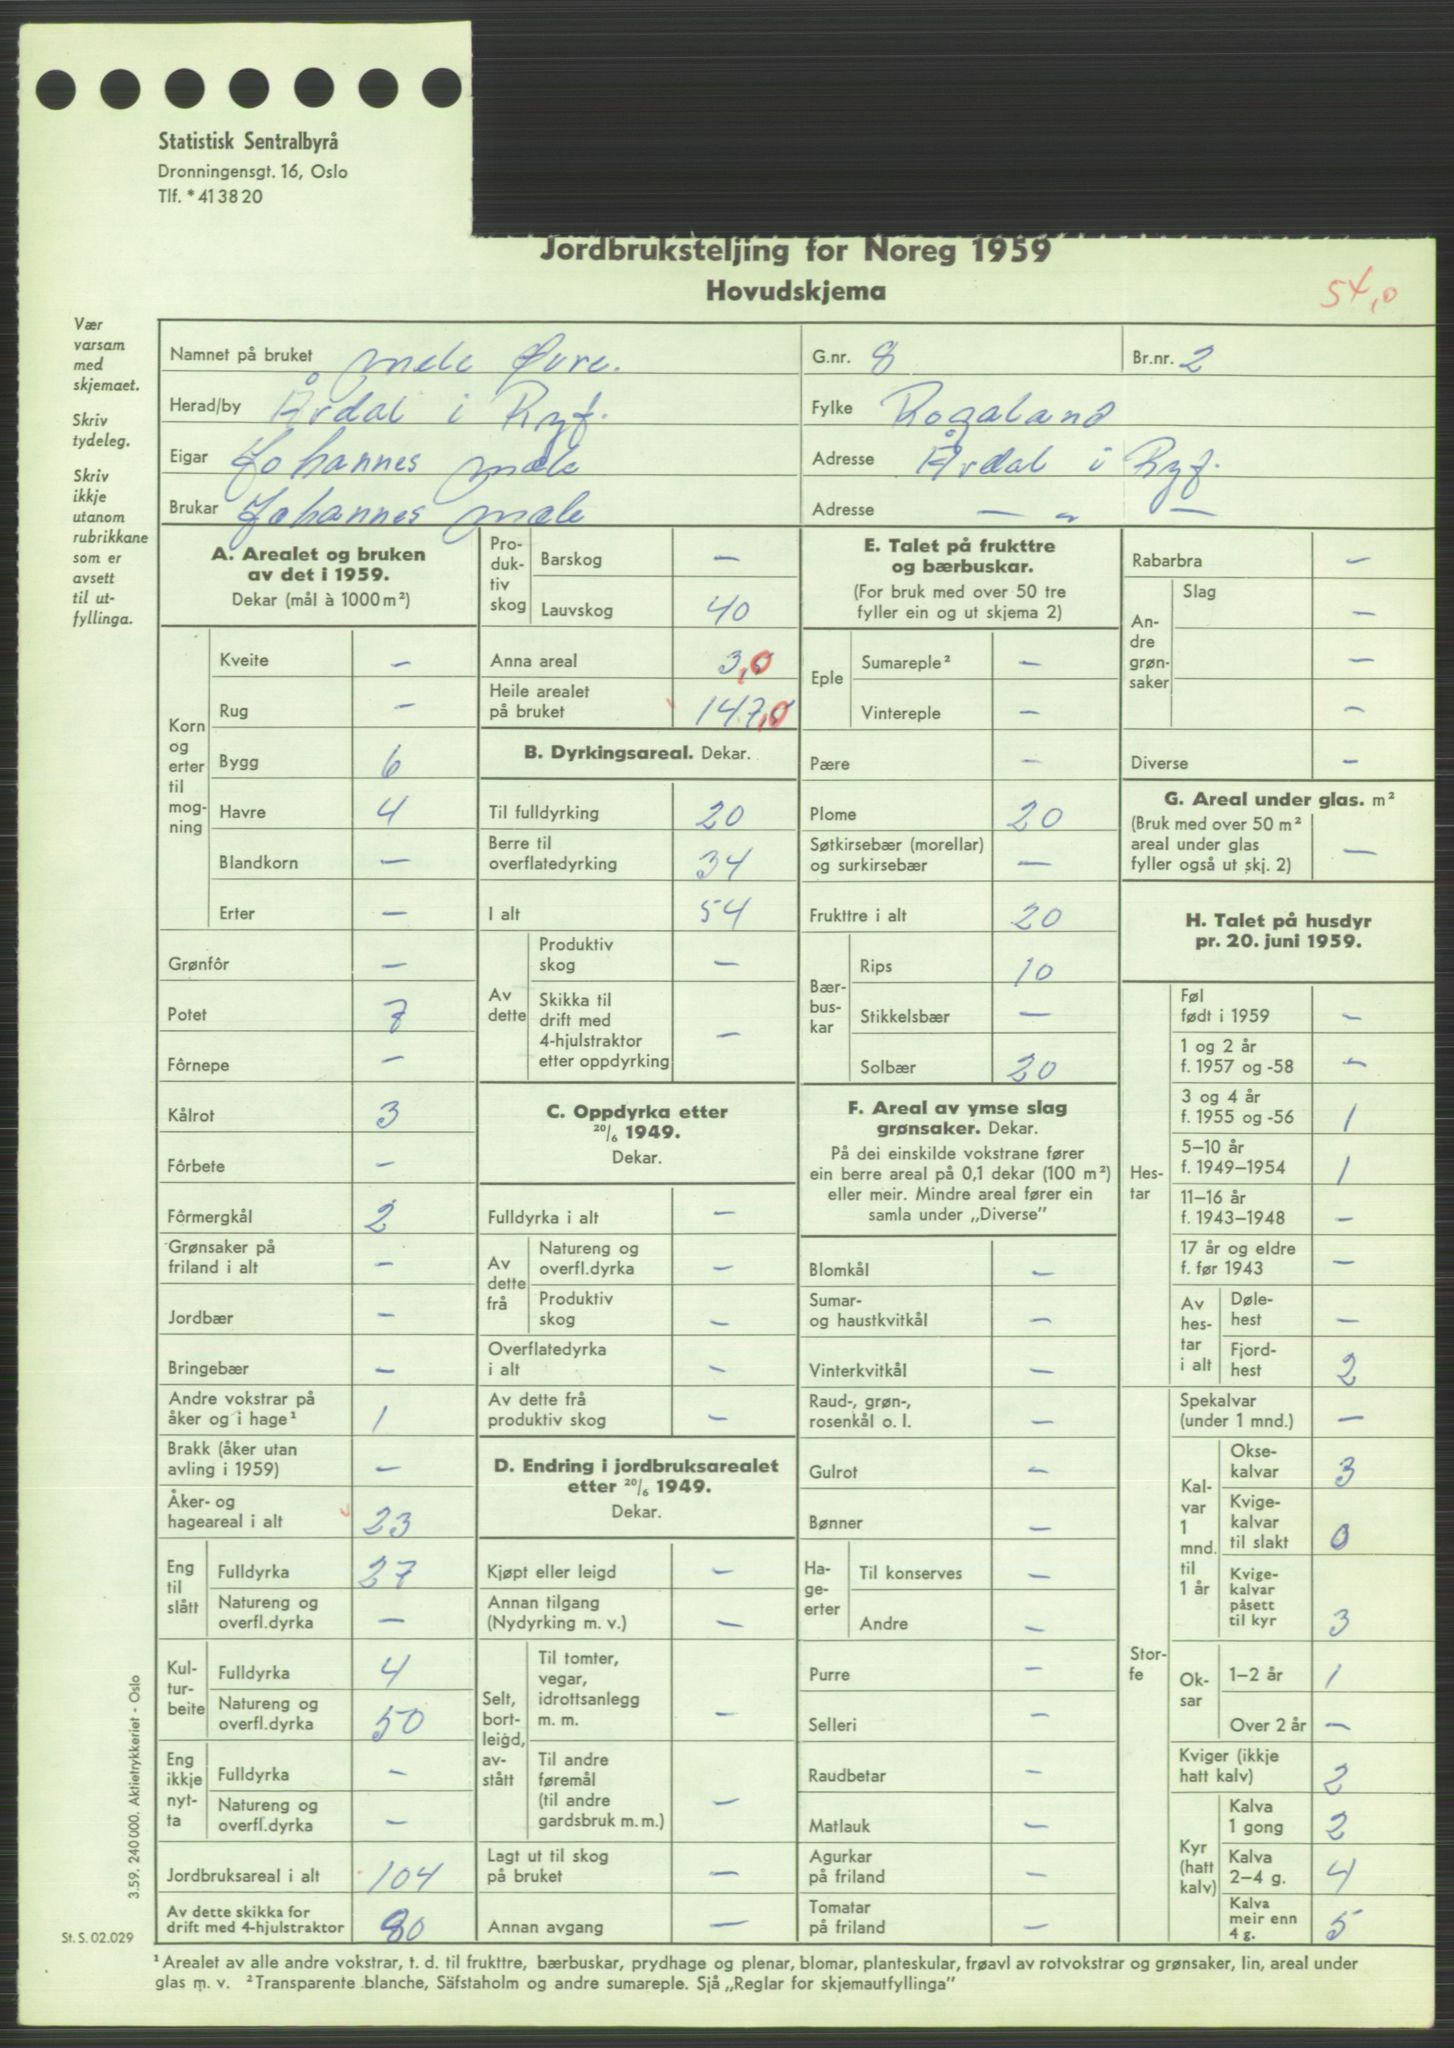 Statistisk Sentralbyrå
Dronningensgt. 16, Oslo
Tlf. * 41 38 20
Jordbruksteljing for Noreg 1959
Hovudskjema
54,0
Vær
varsam
med
skjemaet.
Skriv
tydeleg.
Skriv
ikkje
utanom
rubrikkane
som er
avsett
til ut-
fyllinga.
Namnet på bruket Mele Øvre.
G.nr. 8
Br.nr. 2
Herad/by Årdal i Ryf.
Fylke Rogaland
Eigar Johannes Mæle
Adresse Årdal i Ryf.
Brukar Johannes Mæle
Adresse — „ —
A. Arealet og bruken
av det i 1959.
Dekar (mål à 1000 m²)
Korn
og
erter
til
mog-
ning
Kveite –
Rug –
Bygg 6
Havre 4
Blandkorn –
Erter –
Grønfôr –
Potet 7
Fôrnepe –
Kålrot 3
Fôrbete –
Fôrmergkål 2
Grønsaker på
friland i alt –
Jordbær –
Bringebær –
Andre vokstrar på
åker og i hage¹ 1
Brakk (åker utan
avling i 1959) –
Åker- og
hageareal i alt 23
Eng
til
slått
Fulldyrka 27
Natureng og
overfl.dyrka –
Kul-
tur-
beite
Fulldyrka 4
Natureng og
overfl.dyrka 50
Eng
ikkje
nyt-
ta
Fulldyrka –
Natureng og
overfl.dyrka –
Jordbruksareal i alt 104
Av dette skikka for
drift med 4-hjulstraktor 80
Pro-
duk-
tiv
skog
Barskog –
Lauvskog 40
Anna areal 3,0
Heile arealet
på bruket 147,0
B. Dyrkingsareal. Dekar.
Til fulldyrking 20
Berre til
overflatedyrking 34
I alt 54
Av
dette
Produktiv
skog –
Skikka til
drift med
4-hjulstraktor
etter oppdyrking –
C. Oppdyrka etter
20/6 1949.
Dekar.
Fulldyrka i alt –
Av
dette
frå
Natureng og
overfl.dyrka –
Produktiv
skog –
Overflatedyrka
i alt –
Av dette frå
produktiv skog –
D. Endring i jordbruksarealet
etter 20/6 1949.
Dekar.
Kjøpt eller leigd –
Annan tilgang
(Nydyrking m. v.) –
Selt,
bort-
leigd,
av-
stått
Til tomter,
vegar,
idrottsanlegg
m. m. –
Til andre
føremål
(til andre
gardsbruk m. m.) –
Lagt ut til skog
på bruket –
Annan avgang –
E. Talet på frukttre
og bærbuskar.
(For bruk med over 50 tre
fyller ein og ut skjema 2)
Eple
Sumareple² –
Vintereple –
Pære –
Plome 20
Søtkirsebær (morellar)
og surkirsebær –
Frukttre i alt 20
Bær-
bus-
kar
Rips 10
Stikkelsbær –
Solbær 20
F. Areal av ymse slag
grønsaker. Dekar.
På dei einskilde vokstrane fører
ein berre areal på 0,1 dekar (100 m²)
eller meir. Mindre areal fører ein
samla under „Diverse”
Blomkål –
Sumar-
og haustkvitkål –
Vinterkvitkål –
Raud-, grøn-,
rosenkål o. l. –
Gulrot –
Bønner –
Ha-
ge-
erter
Til konserves –
Andre –
Purre –
Selleri –
Raudbetar –
Matlauk –
Agurkar
på friland –
Tomatar
på friland –
Rabarbra –
An-
dre
grøn-
saker
Slag
–
–
–
Diverse –
G. Areal under glas. m²
(Bruk med over 50 m²
areal under glas
fyller også ut skj. 2) –
H. Talet på husdyr
pr. 20. juni 1959.
Hes-
tar
Føl
født i 1959 –
1 og 2 år
f. 1957 og -58 –
3 og 4 år
f. 1955 og -56 1
5–10 år
f. 1949–1954 1
11–16 år
f. 1943–1948 –
17 år og eldre
f. før 1943 –
Av
hes-
tar
i alt
Døle-
hest –
Fjord-
hest 2
Stor-
fe
Spekalvar
(under 1 mnd.) –
Kal-
var
1
mnd.
til
1 år
Okse-
kalvar 3
Kvige-
kalvar
til slakt 0
Kvige-
kalvar
påsett
til kyr 3
Ok-
sar
1–2 år 1
Over 2 år –
Kviger (ikkje
hatt kalv) 2
Kyr
(hatt
kalv)
Kalva
1 gong 2
Kalva
2–4 g. 4
Kalva
meir enn
4 g. 5
3.59. 240 000. Aktietrykkeriet - Oslo
St. S. 02.029
¹ Arealet av alle andre vokstrar, t. d. til frukttre, bærbuskar, prydhage og plenar, blomar, planteskular, frøavl av rotvokstrar og grønsaker, lin, areal under
glas m. v. ² Transparente blanche, Säfstaholm og andre sumareple. Sjå „Reglar for skjemautfyllinga”